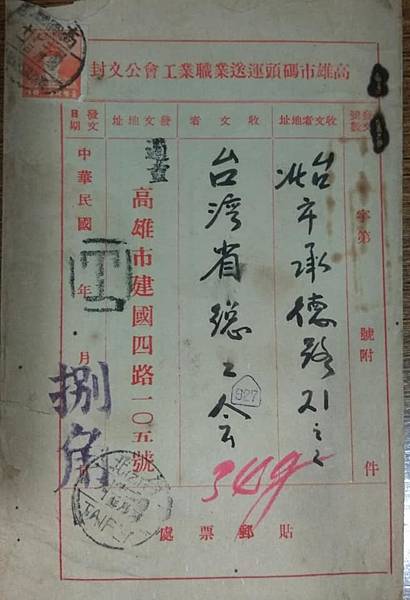 高雄市碼頭運送業職業工會公文封
發文號數
字第
號附
件
收文者地址
台北市承德路21之2
收文者
台灣省總工会
927
349
發文地址
高雄市建國四路一〇五號
發文日期
中華民國
年
月
捌角
貼郵票處
TAIPEI